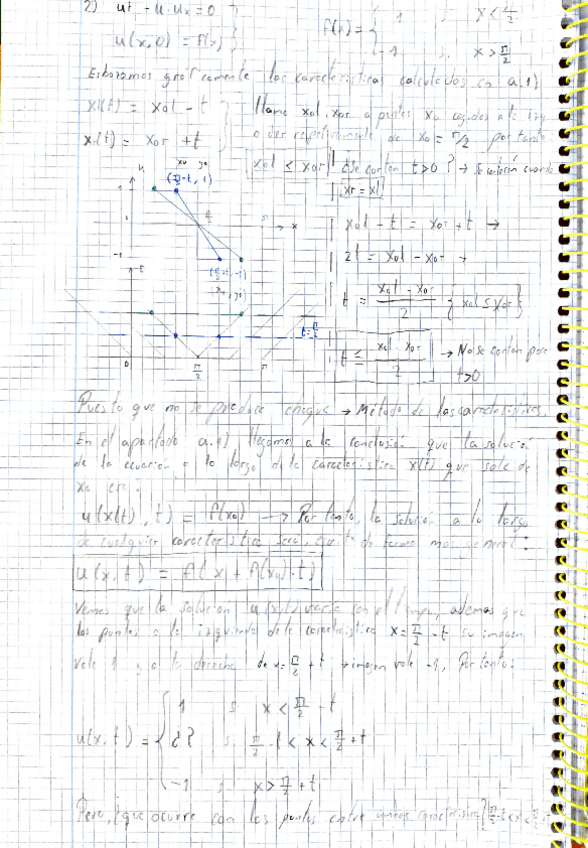 2) ut - u·ux = 0
u(x,0) = f(x)
f(x) = { 1 ; x < π/2
-1 ; x > π/2
Esbozamos gráficamente las características calculadas en a.1)
xl(t) = xol - t
xr(t) = xor + t
llamo xol, xor a puntos xo cogidos a la izq
o der repetivamente de xo = π/2 por tanto:
xol ≤ xor
¿Se cortan t>0? → Se cortarán cuando
xr = xl
xol - t = xor + t →
2t = xol - xor →
t = xol - xor / 2 { xol ≤ xor }
t ≤ xol - xor / 2 → No se cortan para
t>0
u
(π/2 - t, 1)
1
π/2
π
x
-1
t
0
π/2
π
Puesto que no se produce choque → Método de las características.
En el apartado a.1) llegamos a la conclusión que la solución
de la ecuación a lo largo de la característica x(t) que sale de
xo era:
u(x(t), t) = f(xo) → Por tanto, la solución a lo largo
de cualquier característica será, de forma más general:
u(x,t) = f(x + f(xo)·t)
Vemos que la solución u(x,t) varía con el tiempo, además que
los puntos a la izquierda de la característica x = π/2 - t su imagen
vale 1 y a la derecha de x = π/2 + t imagen vale -1, Por tanto:
u(x,t) = { 1 si x < π/2 - t
¿? si π/2 - t < x < π/2 + t
-1 si x > π/2 + t
Pero, ¿que ocurre con los puntos entre ambas características?